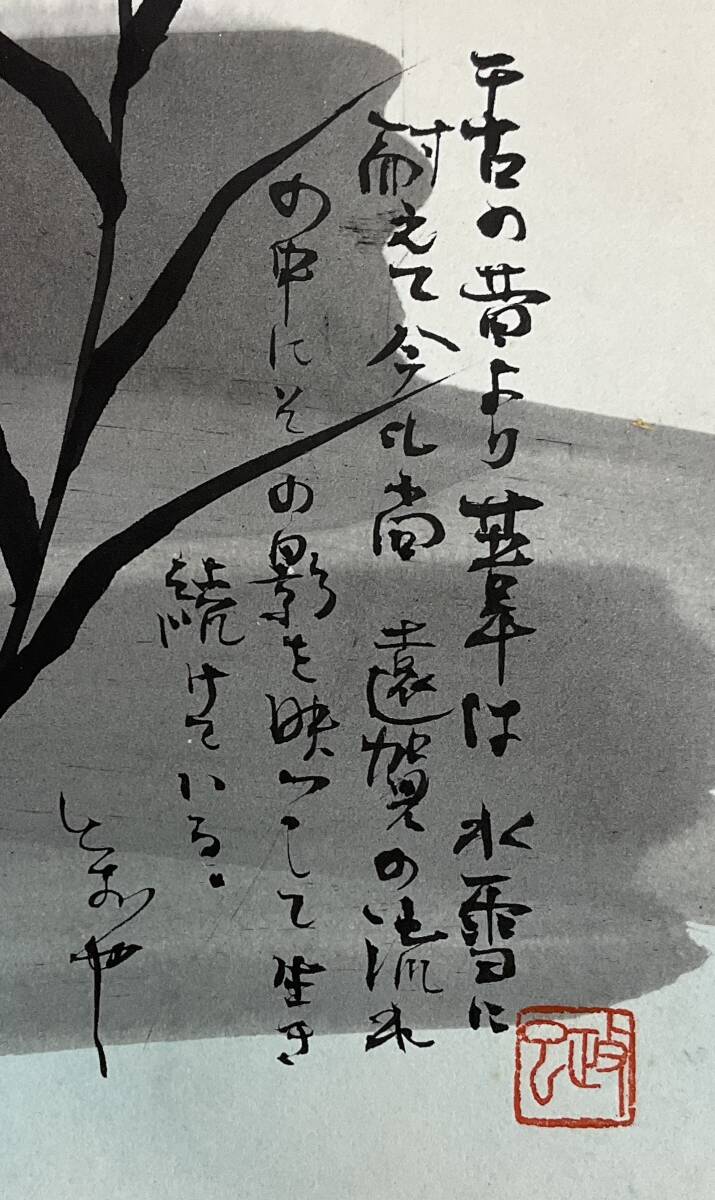 千古の昔より葦は 氷雪に
耐えて今も尚 遠賀の流れ
の中にその影を映して生き
続けている。